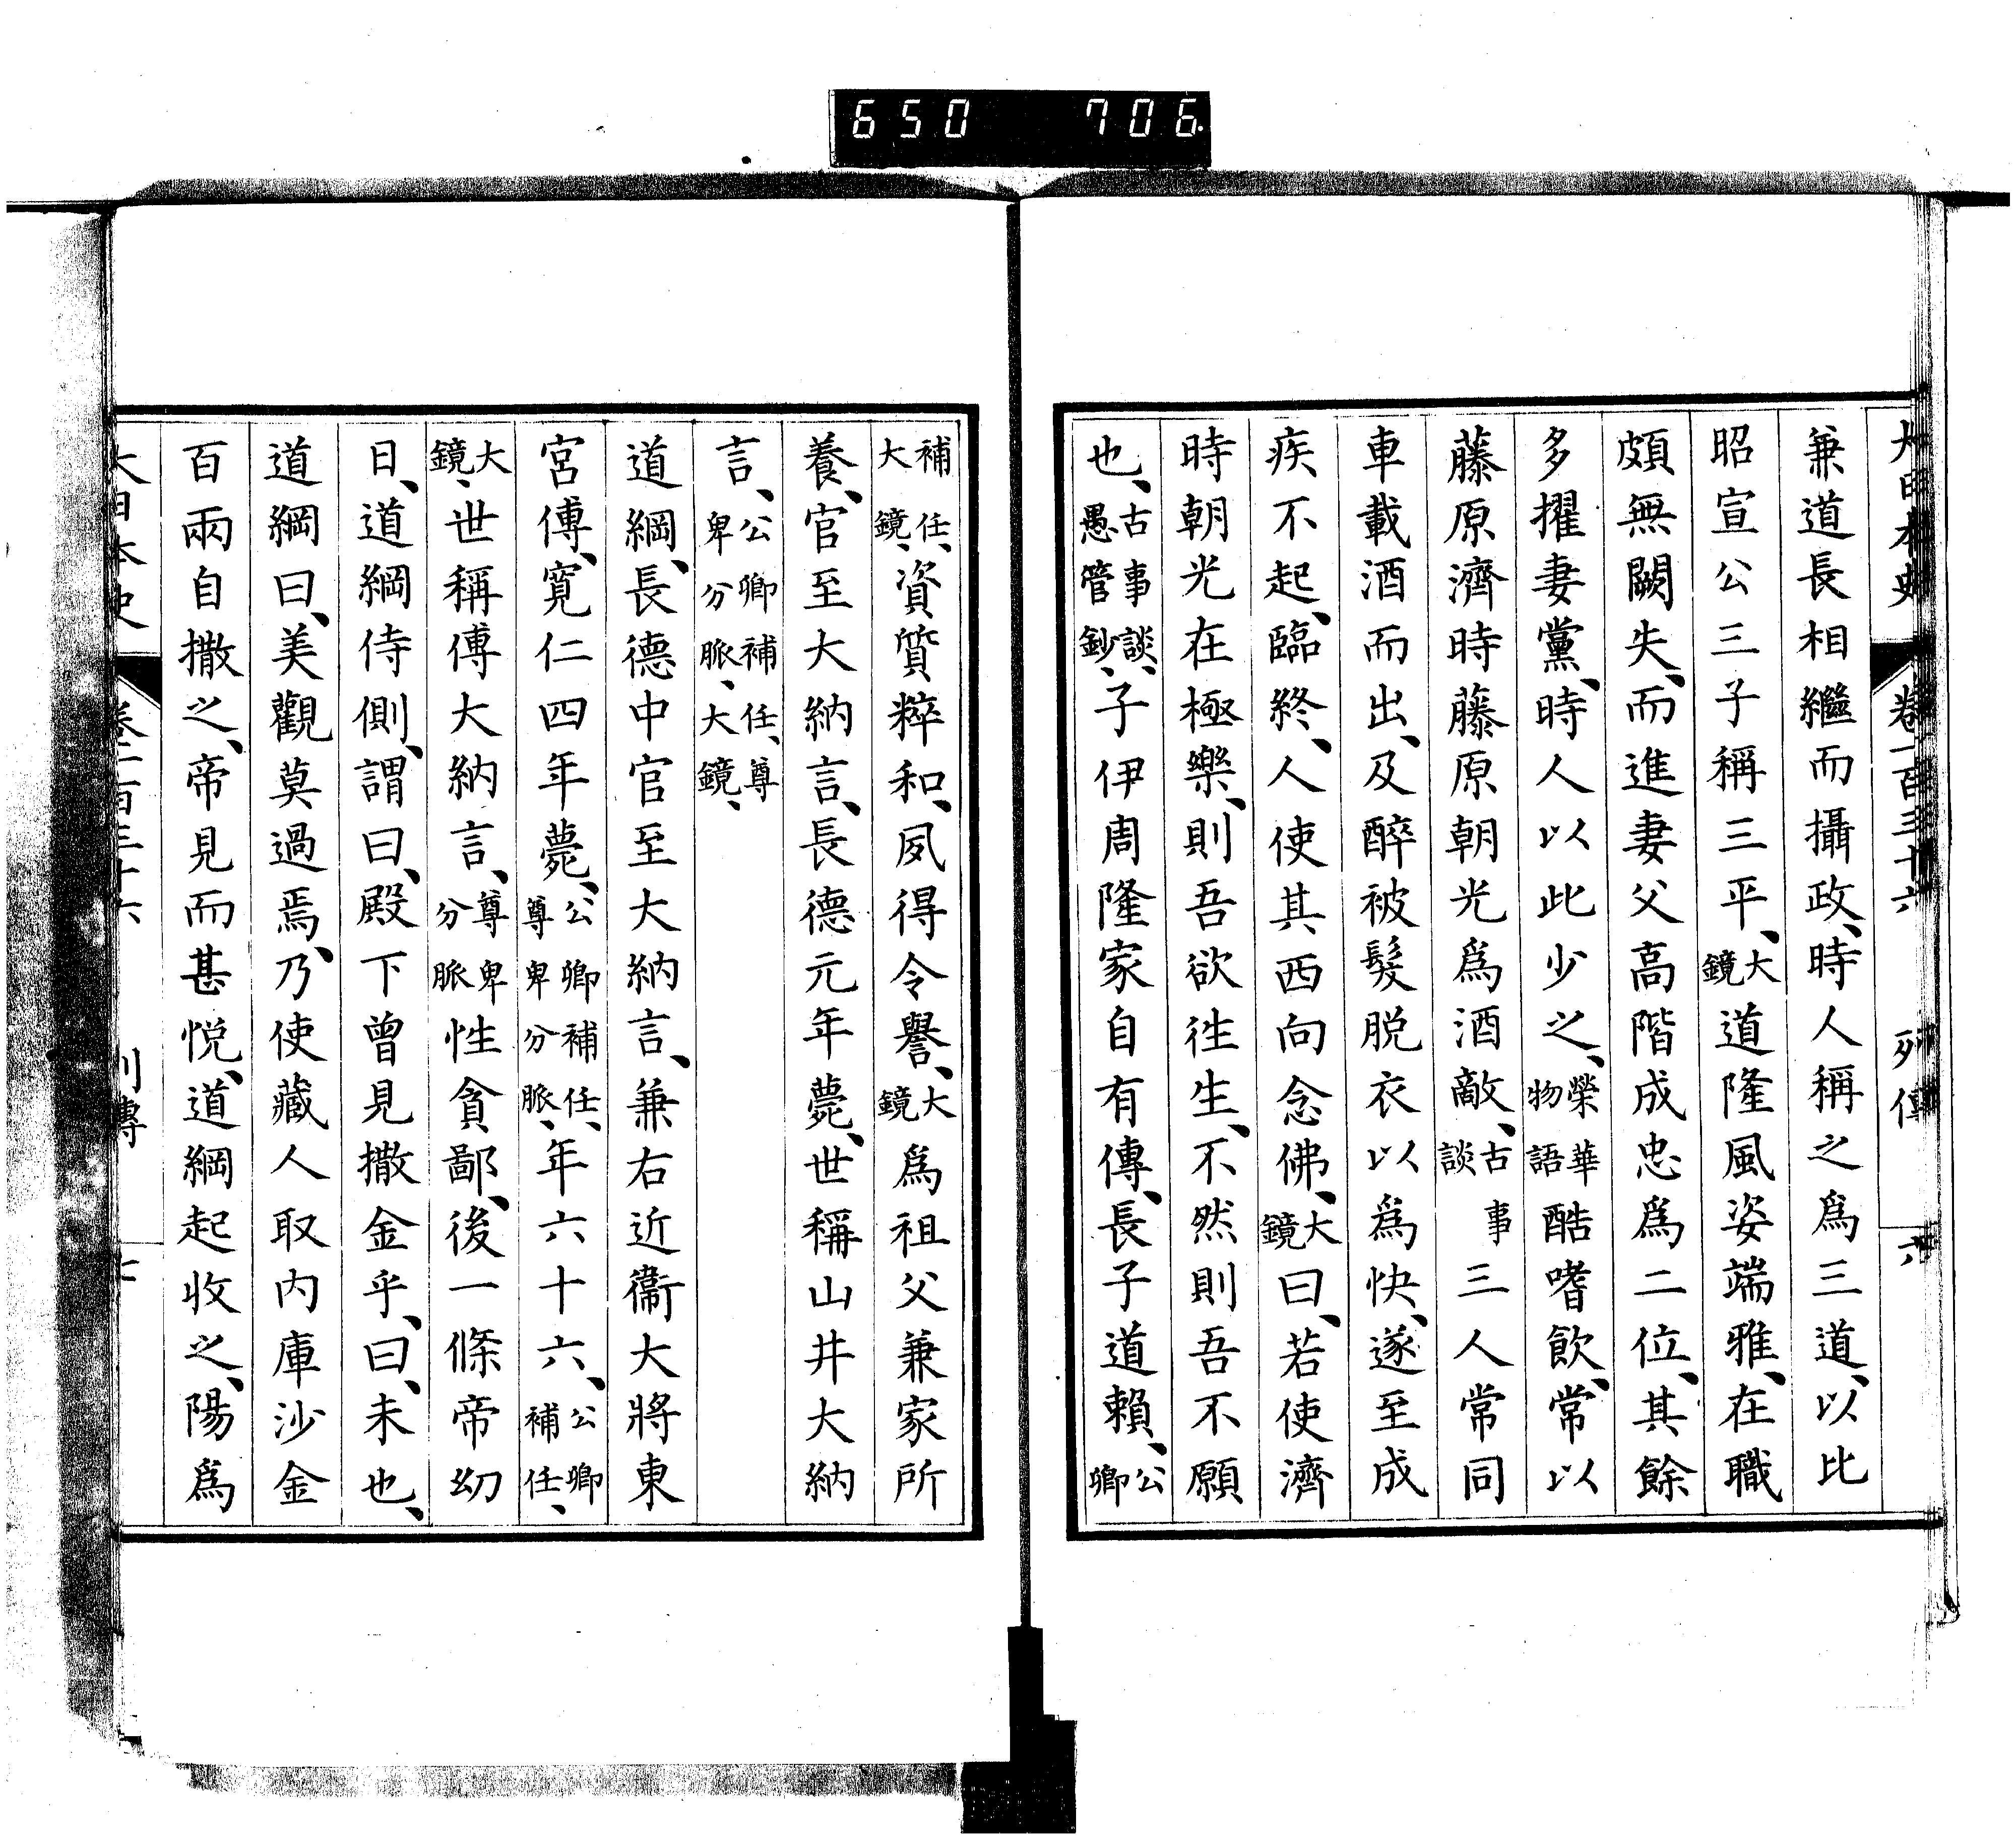 650 706
大日本史 卷一百三十六 列傳 六
兼道長相繼而攝政、時人稱之爲三道、以比
昭宣公三子稱三平、大鏡道隆風姿端雅、在職
頗無闕失、而進妻父高階成忠爲二位、其餘
多擢妻黨、時人以此少之、榮華物語酷嗜飲、常以
藤原濟時藤原朝光爲酒敵、古事談三人常同
車載酒而出、及醉被髮脱衣以爲快、遂至成
疾不起、臨終、人使其西向念佛、大鏡曰、若使濟
時朝光在極樂、則吾欲徃生、不然則吾不願
也、古事談、愚管鈔、子伊周隆家自有傳、長子道賴、公卿
補任、大鏡、資質粹和、夙得令譽、大鏡爲祖父兼家所
養、官至大納言、長德元年薨、世稱山井大納
言、公卿補任、尊卑分脈、大鏡、
道綱、長德中官至大納言、兼右近衞大將東
宮傅、寬仁四年薨、公卿補任、尊卑分脈、年六十六、公卿補任、
大鏡、世稱傅大納言、尊卑分脈性貪鄙、後一條帝幼
日、道綱侍側、謂曰、殿下曾見撒金乎、曰、未也、
道綱曰、美觀莫過焉、乃使藏人取内庫沙金
百兩自撒之、帝見而甚悦、道綱起收之、陽爲
大日本史 卷一百三十六 列傳 七